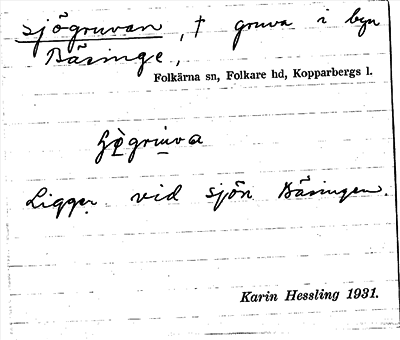 sjögruvan, † gruva i byn
Bäsinge,
Folkärna sn, Folkare hd, Kopparbergs l.
Ligger vid sjön Bäsingen.
Karin Hessling 1931.